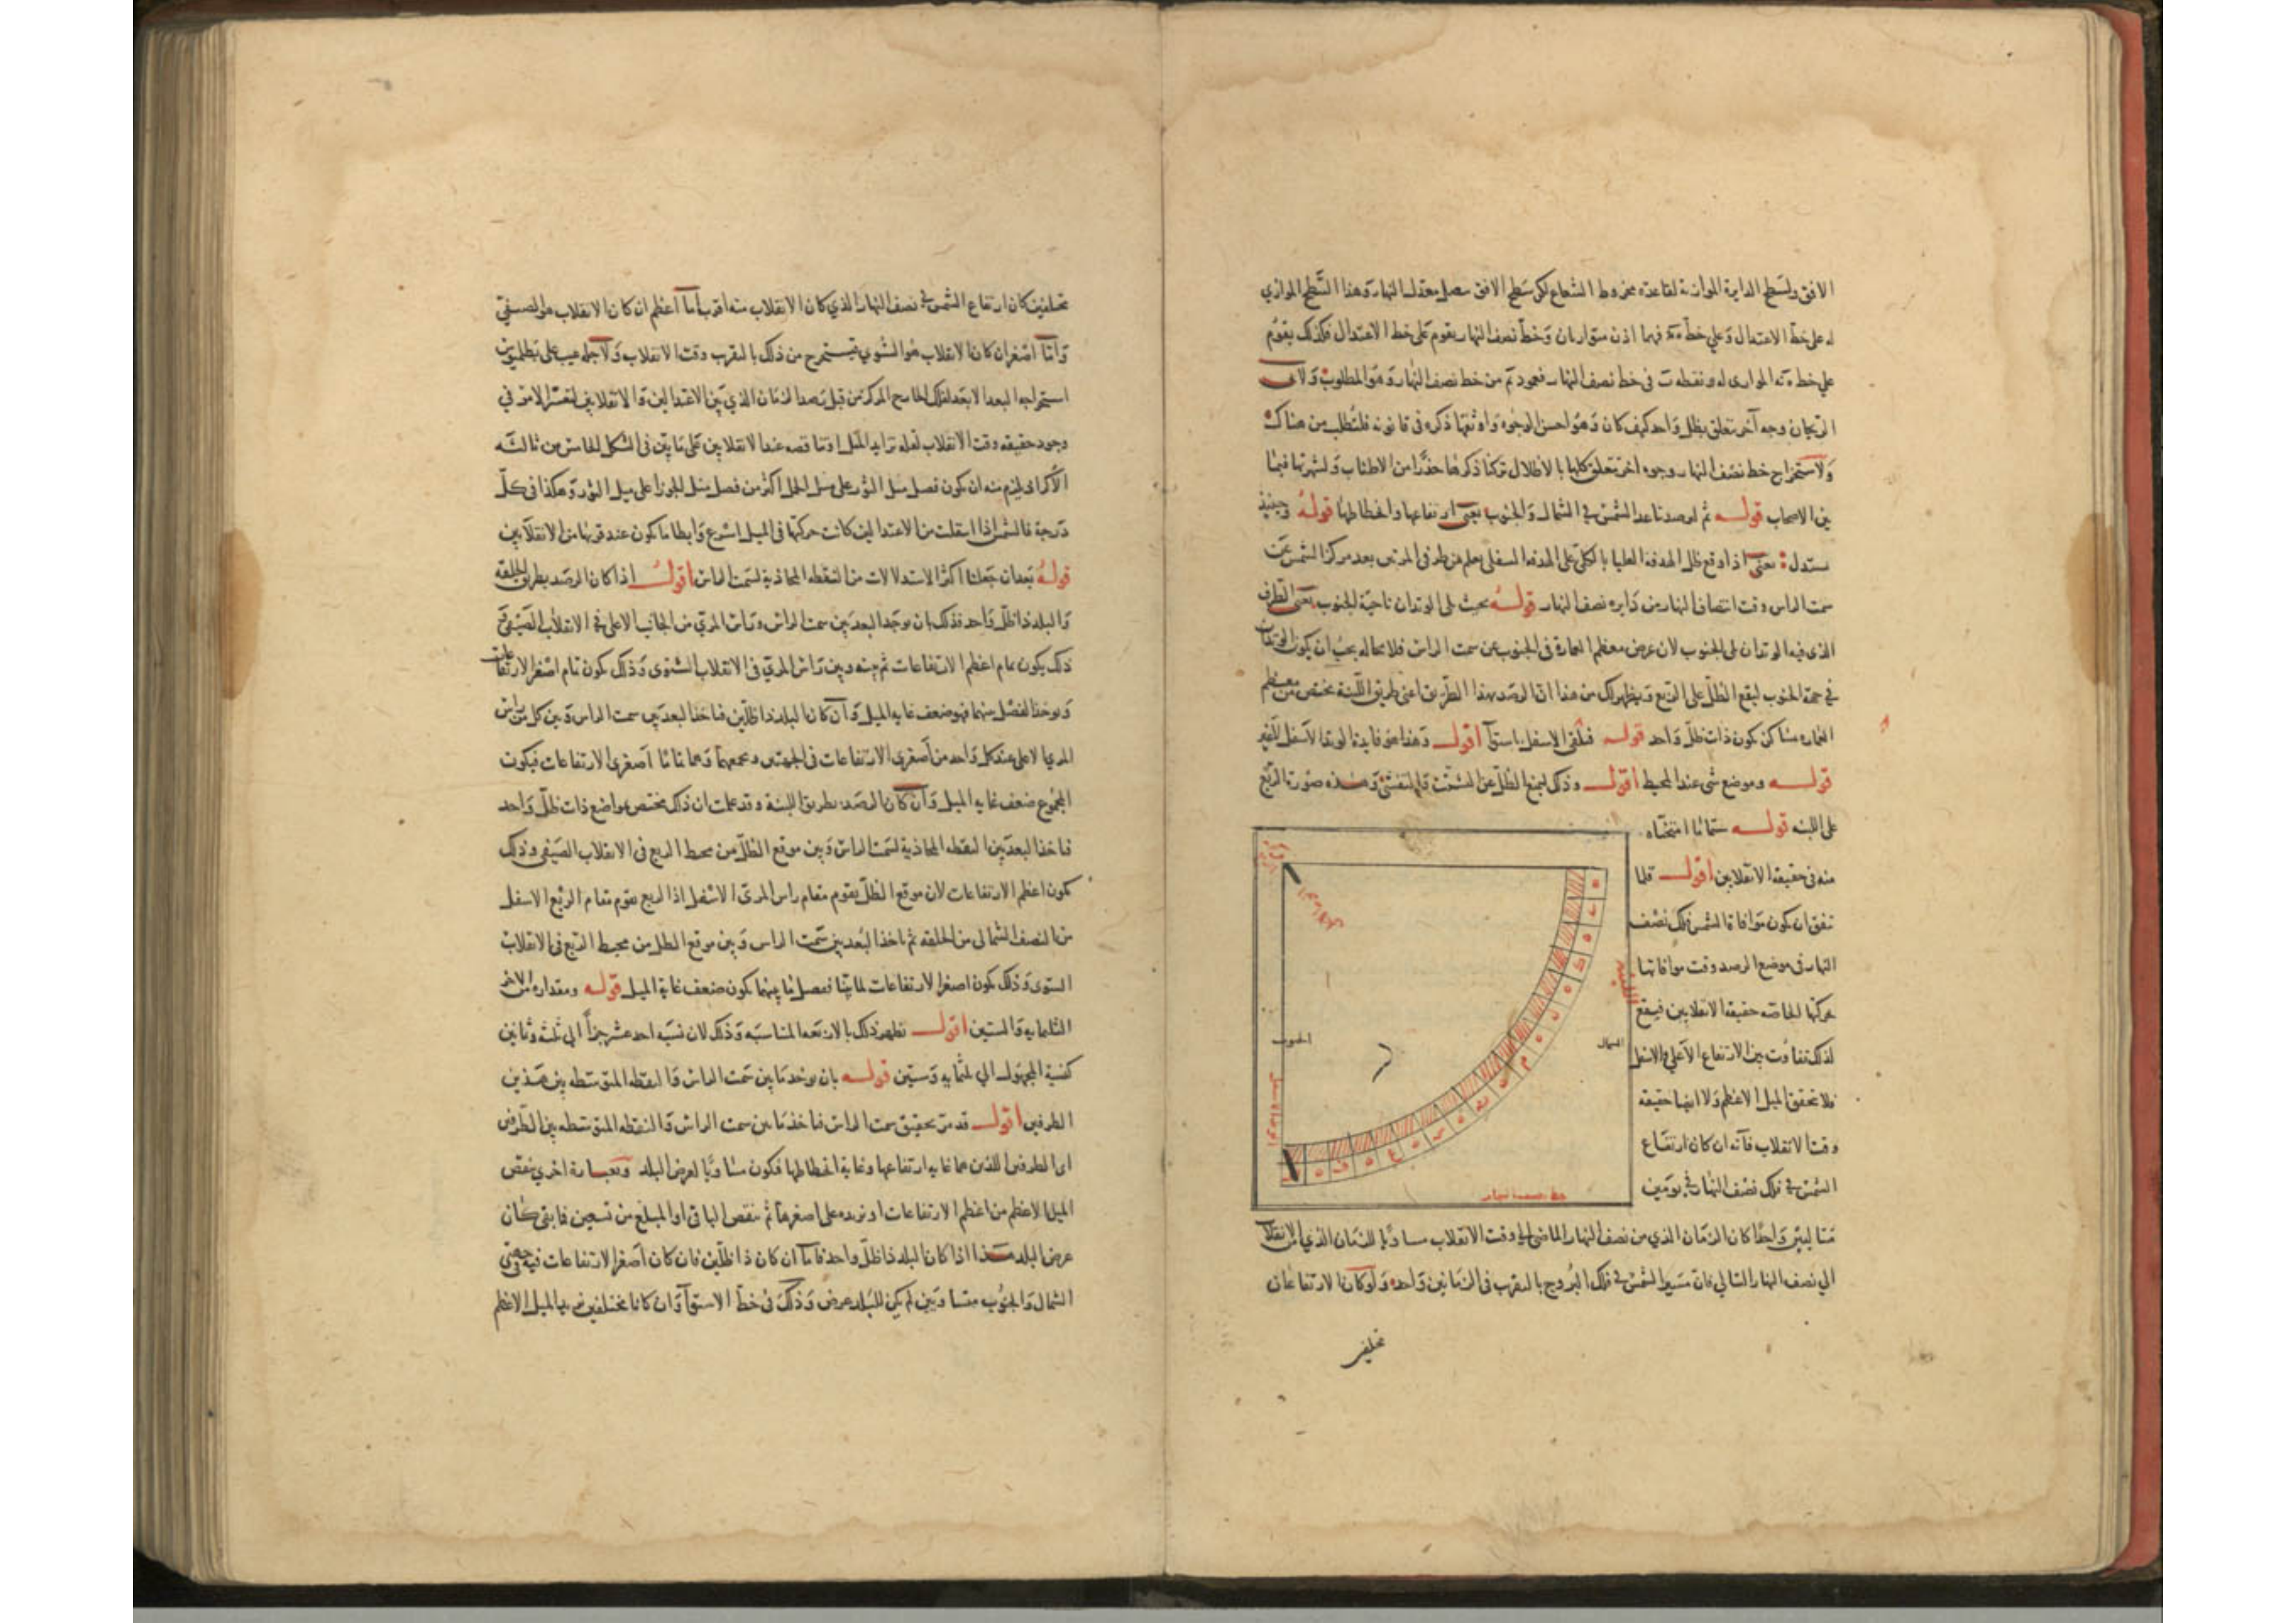 الافق ولسطح الدايرة الموازية لقاعدة مخروط الشعاع لكن سطح الافق يفصل معدل النهار وهذا السطح الموازي
له على خط الاعتدال وعلي خط فهما اذن متوازيان وخط نصف النهار يقوم على خط الاعتدال فكذلك يقوم
علي خط الموازى له ونقطة فى خط نصف النهار فعمود من خط نصف النهار وهو المطلوب ولابى
الريحان وجه آخر تعلق بظل واحد كيف كان وهو احسن الوجوه واوثقها ذكره فى قانونه فلتطلب من هناك
ولاستخراج خط نصف النهار وجوه اخر تتعلق كلها بالاظلال تركنا ذكرها حذرا من الاطناب ولشهرتها فيما
بين الاصحاب قوله ثم لو صدنا بعد الشمس في الشمال والجنوب يعنى ارتفاعها وانحطاطها قوله وحينئذ
يستدل يعنى اذا وقع ظل الهدفة العليا بالكلى على الهدفة السفلى يعلم من طرفى المرى بعد مركز الشمس عن
سمت الراس وقت انتصاف النهار من دايرة نصف النهار قوله بحيث يلى الوتدان ناحية الجنوب يعنى الطرف
الذى فيه الوتدان يلى الجنوب لان عرض معظم العمارة فى الجنوب عن سمت الراس فلا محاله يجب ان يكون الوتدان
في جهة الجنوب ليقع الظل على الربع ويظهر لك من هذا ان الرصد بهذا الطريق اعنى طريق اللبنة مختص من معظم
العماره مساكن يكون ذات ظل واحد قوله فنلقى الاسفل باستوآ اقول وهذا هو فايدة الوتد الاسفل لا غير
قوله وموضع شى عند المحيط اقول وذلك ليمنع الظل عن التشتت والتفشى وهذه صورة الربع
على اللبنه قوله ستمائا امتحناه
منه فى حقيقة الانقلابين اقول قلما
تتفق ان يكون موافاة الشمس فلك نصف
النهار فى موضع الرصد وقت موافاتها
بحركتها الخاصة حقيقة الانقلابين فيقع
لذلك تفاوت بين الارتفاع الاعلى والاسفل
فلا تحقق الميل الاعظم ولا ايضا حقيقة
وقت الانقلاب فانه ان كان ارتفاع
الشمس في فلك نصف النهار في يومين
متتاليين واحدا كان الزمان الذي من نصف النهار الماضى الي وقت الانقلاب مساويا للزمان الذي من الانقلاب
الي نصف النهار التالي فان مسير الشمس في فلك البروج بالتقرب فى الزمانين واحد ولو كان الارتفاعان
مختلفين
الجنوب
الشمال
اللبنة
الوتد الاسفل
خط نصف النهار
مختلفين كان ارتفاع الشمس في نصف النهار الذي كان الانقلاب منه اقرب اما اعظم ان كان الانقلاب هو الصيفي
واما اصغر ان كان الانقلاب هو الشتوي فيستخرج من ذلك بالتقرب وقت الانقلاب ولاجله عيب على بطلميوس
استخراجه البعد الابعد لفلك الخارج المركز من قبل رصد الزمان الذي بين الاعتدالين والانقلابين لتعسر الامر في
وجود حقيقة وقت الانقلاب لقلة تزايد الميل او تناقصه عند الانقلابين على ما تبين فى الشكل الخامس من ثالثة
الاكر اذ يلزم منه ان يكون فضل ميل الثور على ميل الحمل اكثر من فضل ميل الجوزا على ميل الثور وهكذا فى كل
درجة فالشمس اذا انتقلت من الاعتدالين كانت حركتها فى الميل اسرع وابطا ما يكون عند قربها من الانقلابين
قوله بعد ان جعلنا اكثر الاستدلالات من النقطه المحاذية لسمت الراس اقول اذا كان الرصد بطريق الحلقة
والبلد ذا ظل واحد فذلك بان يوجد البعد بين سمت الراس وراس المرى من الجانب الاعلى في الانقلاب الصيفى
ذلك يكون تمام اعظم الارتفاعات ثم بينه وبين راس المرى فى الانقلاب الشتوى وذلك يكون تمام اصغر الارتفاعات
ويوخذ الفضل بينهما فهو ضعف غاية الميل وان كان البلد ذا ظلين فناخذ البعد بين سمت الراس وبين كل من راس
المرى الاعلى عند كل واحد من اصغرى الارتفاعات فى الجهتين ونجمعهما وهما تماما اصغرى الارتفاعات فيكون
المجموع ضعف غاية الميل وان كان الرصد بطريق اللبنة وقد علمت ان ذلك مختص بمواضع ذات ظل واحد
فناخذ البعد بين النقطه المحاذية لسمت الراس وبين موقع الظل من محيط الربع فى الانقلاب الصيفى وذلك
يكون اعظم الارتفاعات لان موقع الظل يقوم مقام راس المرى الاسفل اذ الربع يقوم مقام الربع الاسفل
من النصف الشمالى من الحلقة ثم ناخذ البعد بين سمت الراس وبين موقع الظل من محيط الربع فى الانقلاب
الشتوى وذلك يكون اصغر الارتفاعات لما بينا ففضل ما بينهما يكون ضعف غاية الميل قوله ومقداره من الاجزآ
الثلثمايه والستين اقول يظهر ذلك بالاربعه المتناسبه وذلك لان نسبة احد عشر جزأ الي ثلثه وثمانين
كنسبة المجهول الي ثلثمايه وستين قوله بان يوخذ ما بين سمت الراس والنقطه المتوسطه بين هذين
الطرفين اقول قد مر تحقيق سمت الراس فناخذ ما بين سمت الراس والنقطه المتوسطه بين الطرفين
اى الطرفين اللذين هما غاية ارتفاعها وغاية انحطاطها فيكون مساويا لعرض البلد وبعبارة اخري ينقص
الميل الاعظم من اعظم الارتفاعات او نزيده على اصغرها ثم ننقص الباقى او المبلغ من تسعين فما بقى كان
عرض البلد هذا اذا كان البلد ذا ظل واحد فاما ان كان ذا ظلين فان كان اصغر الارتفاعات فيه جهتى
الشمال والجنوب متساويين لم يكن للبلد عرض وذلك فى خط الاستوآ وان كانا مختلفين الميل الاعظم